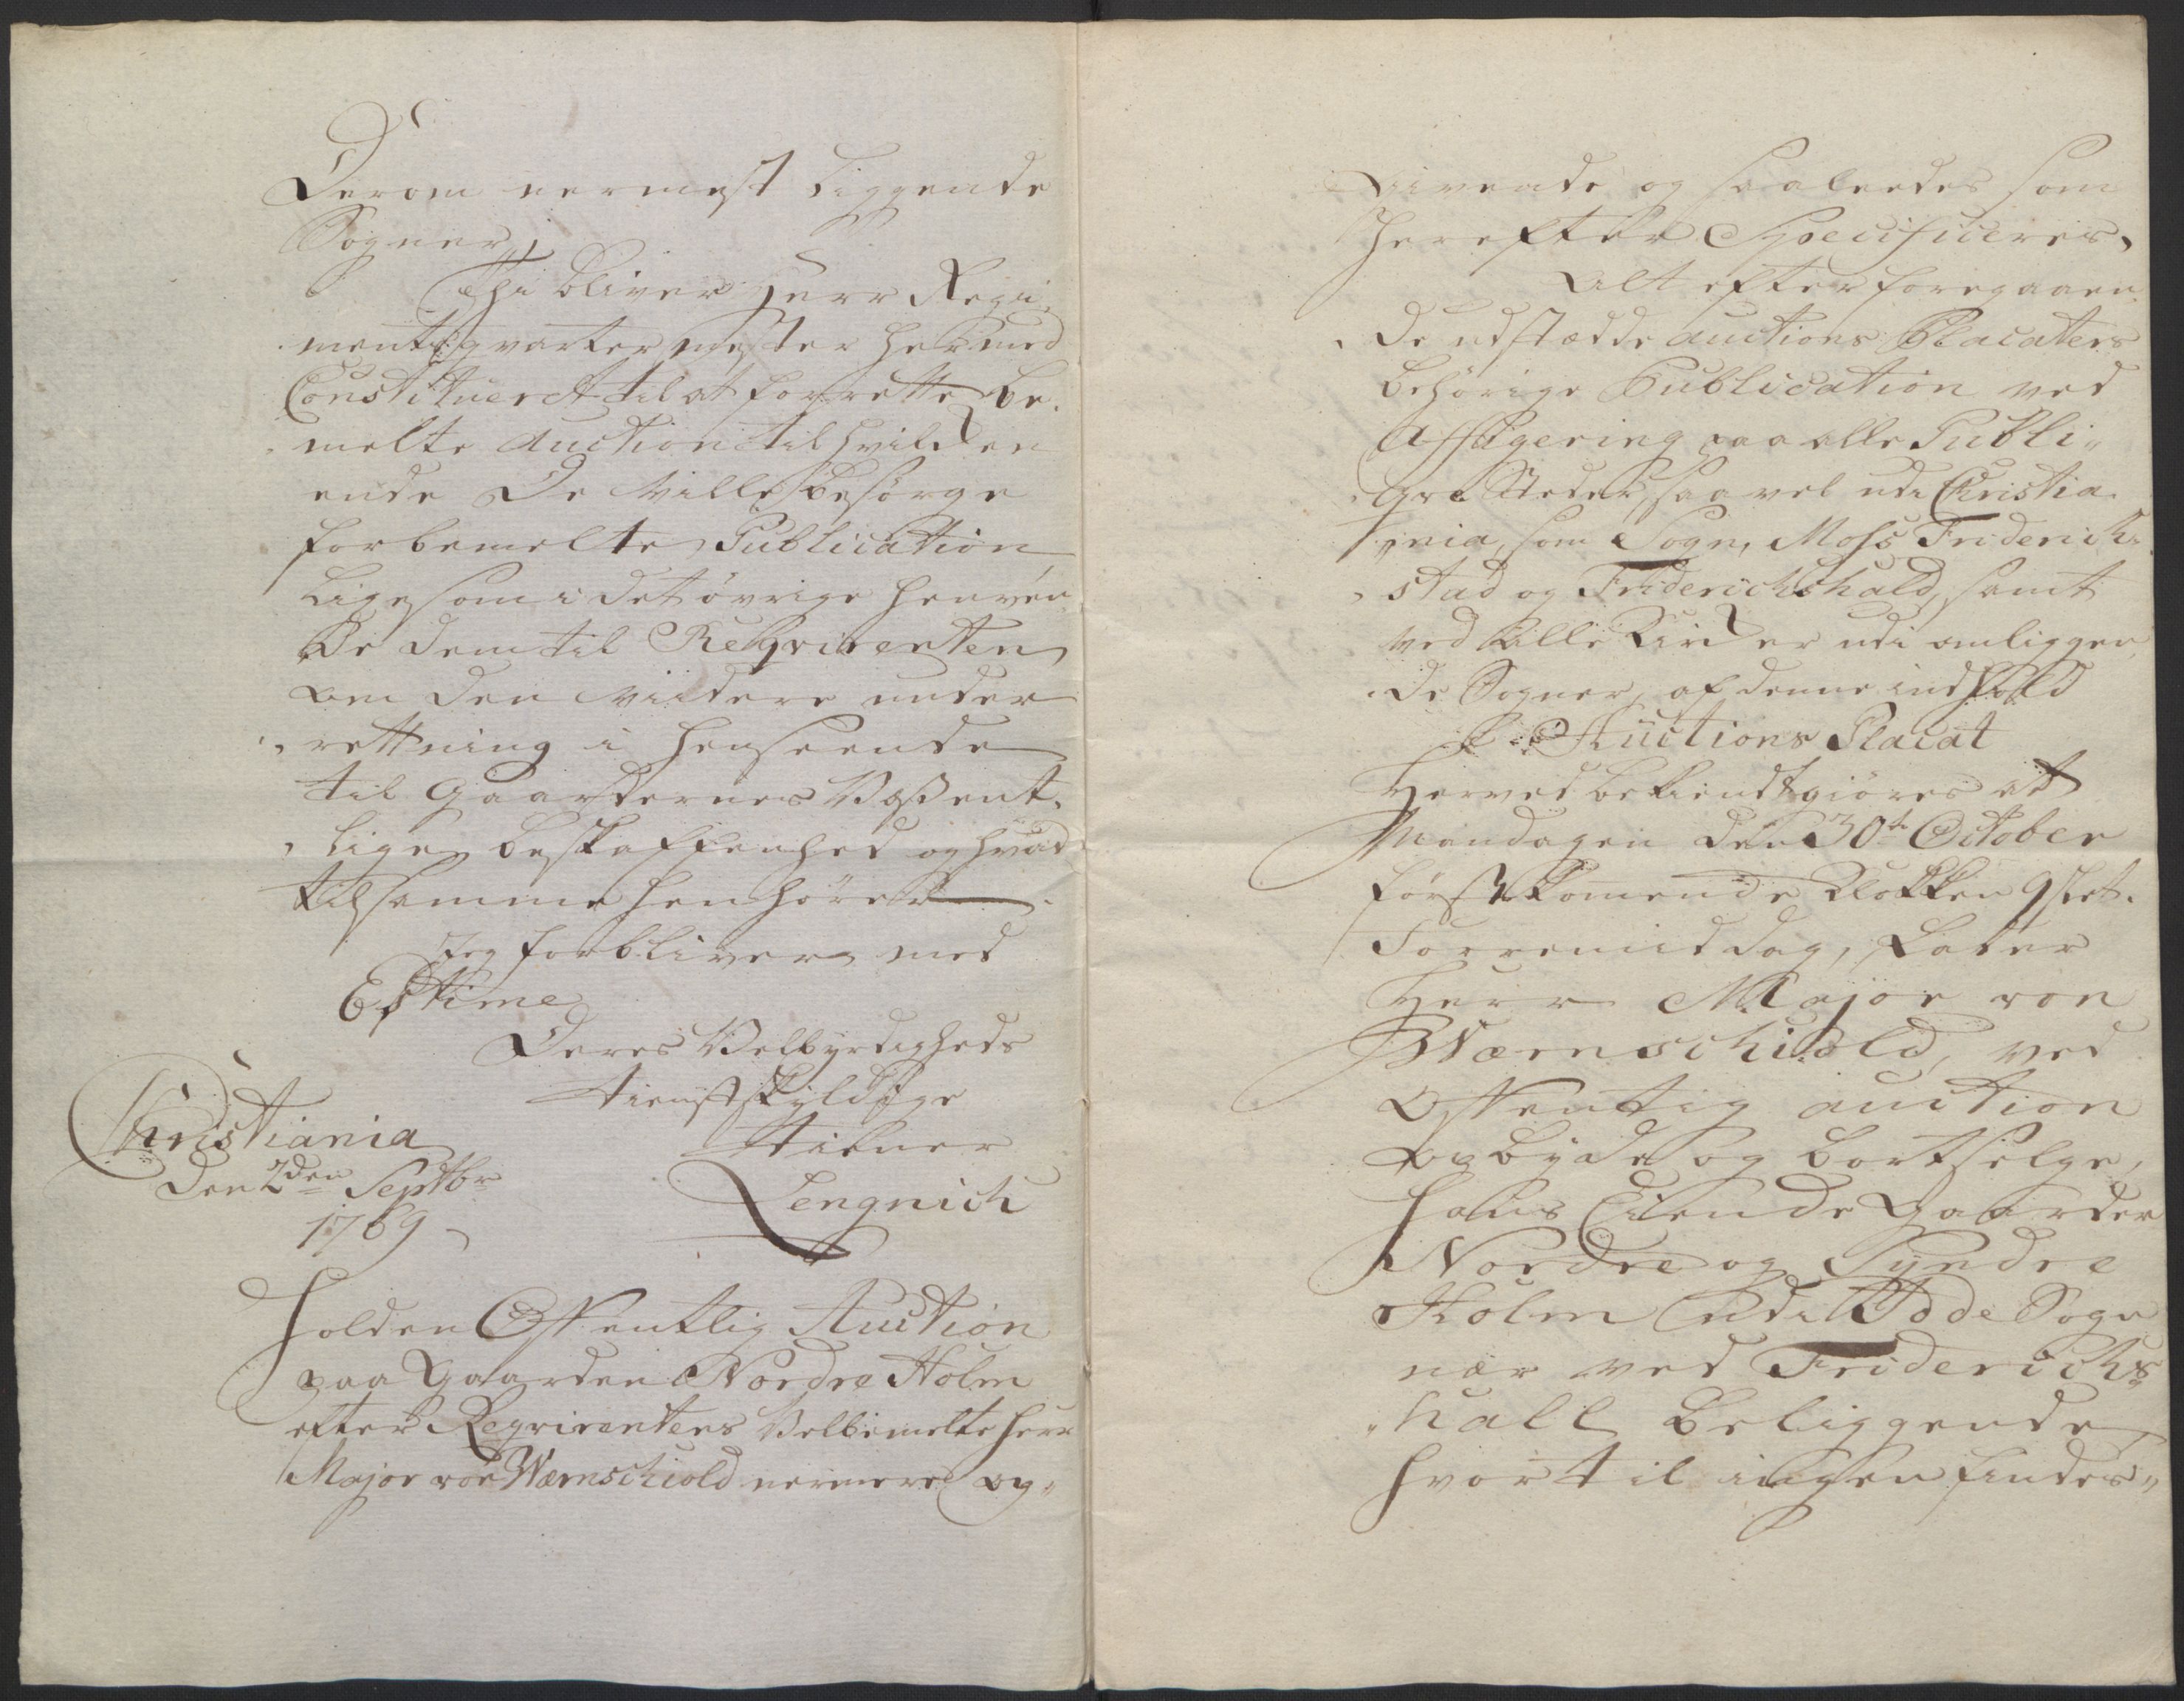 Derom nermest liggende
Sogner,
Thi bliver Herr Regi-
mentsqvartermester hermed
Constitueret til at forrette be-
melte Auction til hvilken
ende De ville besørge
forbemelte Publication,
Lige som i det øvrige henven-
de dem til Reqvirenten
om den viidere under-
rettning i henseende
til Gaardernes Væsent-
lige beskaffenhed og hvad
til samme henhører
Jeg forbliver med
Estime
Deres Velbyrdigheds
tienstskyldige
tiener
Lengnich
Christiania
den 2den Septbr
1769
Holden Offentlig Auction
paa Gaarden Nordre Holm
efter Reqvirentens Velbemelte Herr
Major von Wærnschiold nermere op-
givende og saaleedes som
herefter Specificeres,
Alt efter foregaaen-
de udstædde Auctions Placaters
behørige Publication ved
Affigering paa alle Publi-
qve Steder, saavel udi Christia-
nia, som Sogn, Moss Friderich-
stad og Friderichshald, samt
ved alle Kirker udi omliggen-
de Sogner, af denne indhold
Auctions Placat
Herved bekiendtgiøres at
Mandagen den 30te October
førstkomende Klokken 9 slet.
Formiddag, Lader
Herr Major von
Wærnschiold, ved
Offentlig auction
opbyde og bortselge,
hans Eiende Gaarder
Nordre og Syndre
Holm udi Idde Sogn
nær ved Friderichs-
hall beliggende,
hvortil ingen findes